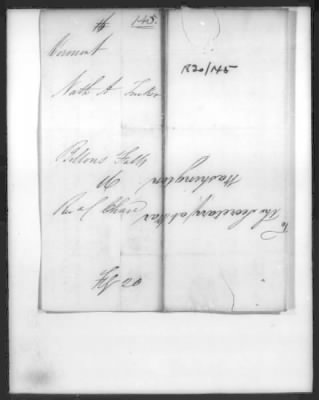 # 145.
Vermont
R20/145
Nath A Tucker
Bellows Falls
Vt
Chase
To
The Secretary of War
Washington
20